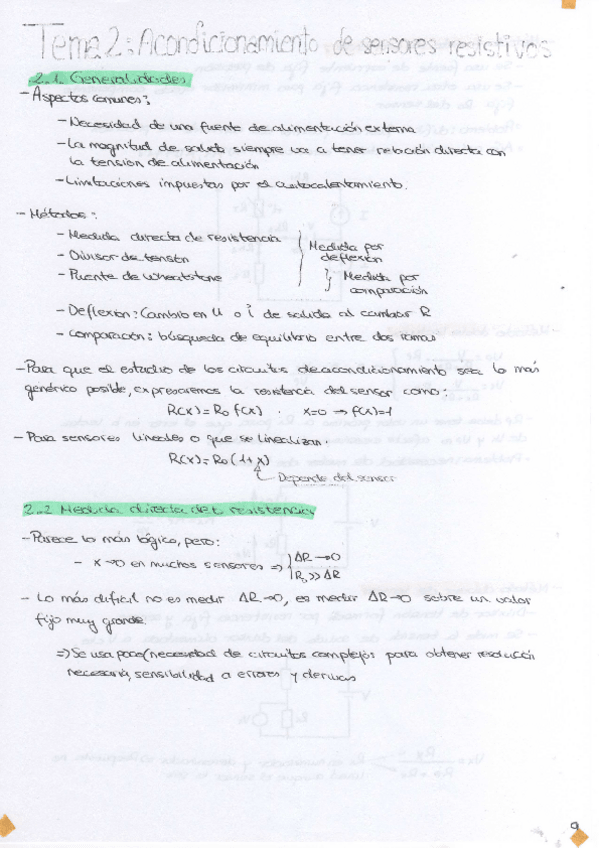 Tema 2: Acondicionamiento de sensores resistivos
2.1. Generalidades
- Aspectos comunes:
- Necesidad de una fuente de alimentación externa
- La magnitud de salida siempre va a tener relación directa con
la tension de alimentación
- Limitaciones impuestas por el autocalentamiento.
- Métodos:
- Medida directa de resistencia
- Divisor de tensión
- Puente de wheatstone
Medida por
deflexión
Medida por
comparación
- Deflexión: Cambio en U o i de salida al cambiar R
- Comparación: búsqueda de equilibrio entre dos ramas
- Para que el estudio de los circuitos de acondicionamiento sea lo más
genérico posible, expresaremos la resistencia del sensor como:
R(x) = R0 f(x) . x=0 → f(x)=1
- Para sensores lineales o que se linealizan:
R(x) = R0 (1+x)
Depende del sensor
2.2 Medida directa de resistencias
- Parece lo más lógico, pero:
- x→0 en muchos sensores ⇒ { ΔR → 0
R0 >> ΔR
- Lo más dificil no es medir ΔR→0, es medir ΔR→0 sobre un valor
fijo muy grande
⇒ Se usa poco (necesidad de circuitos complejos para obtener resolución
necesaria, sensibilidad a errores y derivas
9